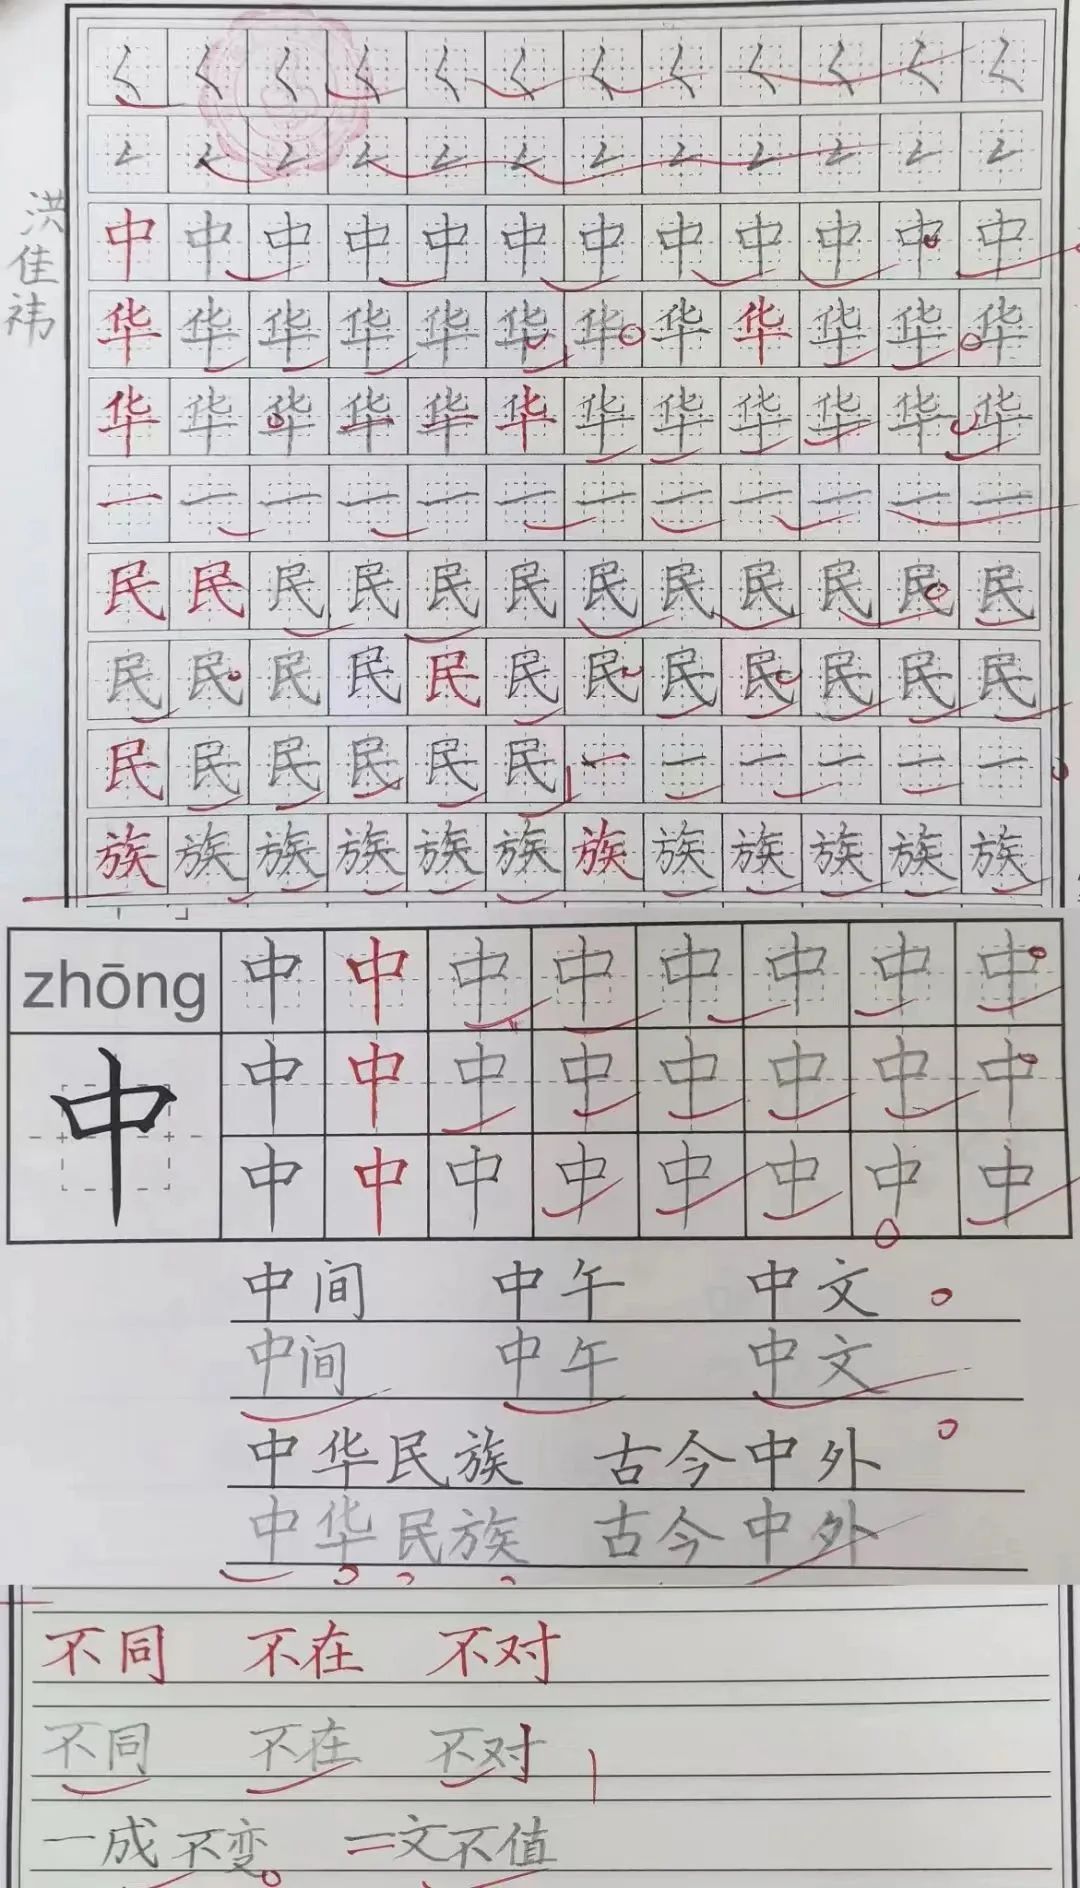 洪佳祎
中中中中中中中中中中中中
华华华华华华华华华华华华
华华华华华华华华华华华华
一一一一一一一一一一一一
民民民民民民民民民民民民
民民民民民民民民民民民民
民民民民民民一一一一一一
族族族族族族族族族族族族
zhōng 中中中中中中中中
中 中中中中中中中中
中中中中中中中中
中间 中午 中文
中间 中午 中文
中华民族 古今中外
中华民族 古今中外
不同 不在 不对
不同 不在 不对
一成不变 一文不值